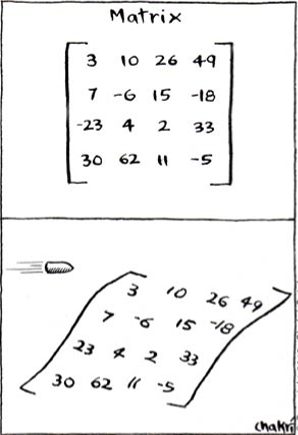 Matrix
3 10 26 49
7 -6 15 -18
-23 4 2 33
30 62 11 -5
3 10 26 49
7 -6 15 -18
23 4 2 33
30 62 11 -5
chakri